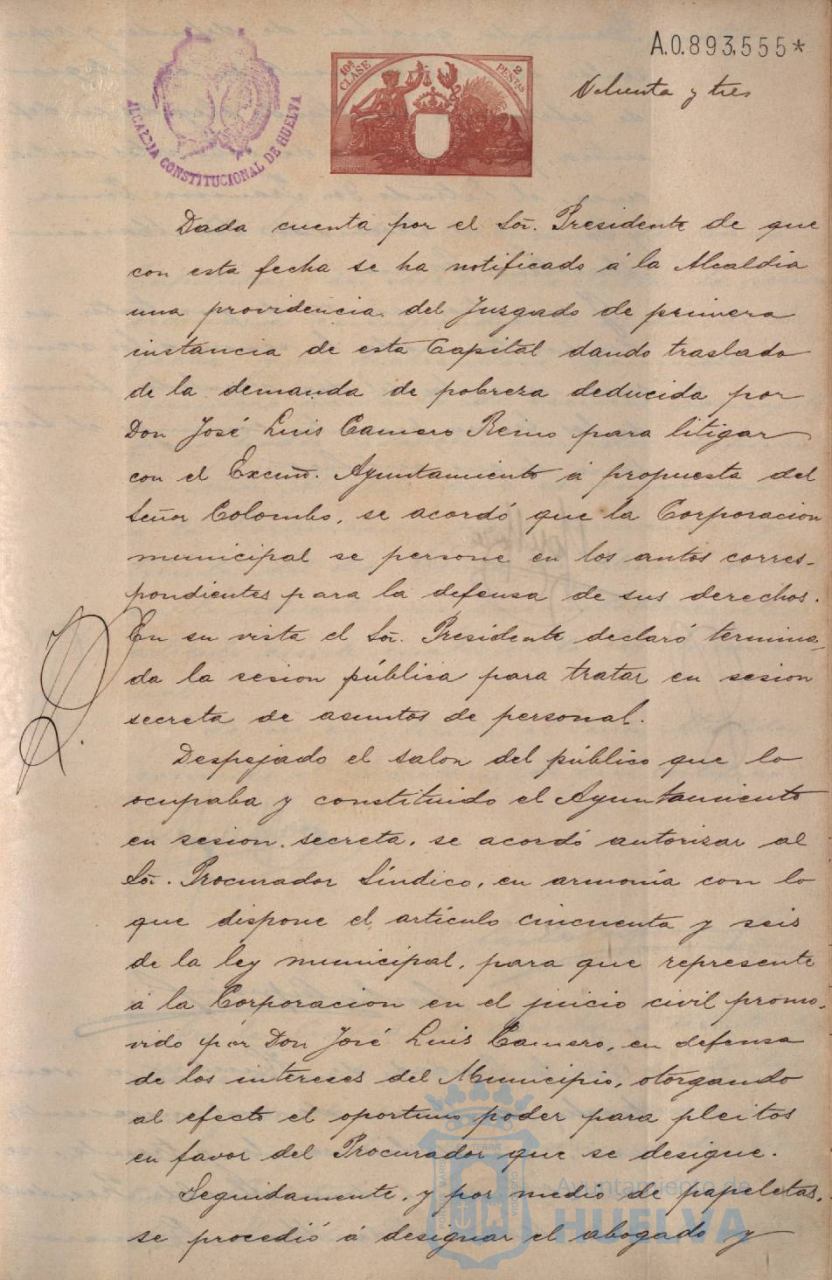 ALCALDIA CONSTITUCIONAL DE HUELVA
10ª CLASE
2 PESTAS
A.0.893,555*
Ochenta y tres
Dada cuenta por el Sor. Presidente de que
con esta fecha se ha notificado á la Alcaldia
una providencia del Juzgado de primera
instancia de esta Capital dando traslado
de la demanda de pobreza deducida por
Don José Luis Camero Reino para litigar
con el Excmo. Ayuntamiento á propuesta del
Señor Colombo, se acordó que la Corporacion
municipal se persone en los autos corres-
pondientes para la defensa de sus derechos.
En su vista el Sor. Presidente declaró termina-
da la sesion pública para tratar en sesion
secreta de asuntos de personal.
Despejado el salon del público que lo
ocupaba y constituido el Ayuntamiento
en sesion secreta, se acordó autorizar al
Sor. Procurador Síndico, en armonía con lo
que dispone el artículo cincuenta y seis
de la ley municipal, para que represente
á la Corporacion en el juicio civil promo-
vido por Don José Luis Camero, en defensa
de los intereses del Municipio, otorgando
al efecto el oportuno poder para pleitos
en favor del Procurador que se desigue.
Seguidamente, y por medio de papeletas,
se procedió á designar el abogado y
Ayuntamiento de
HUELVA